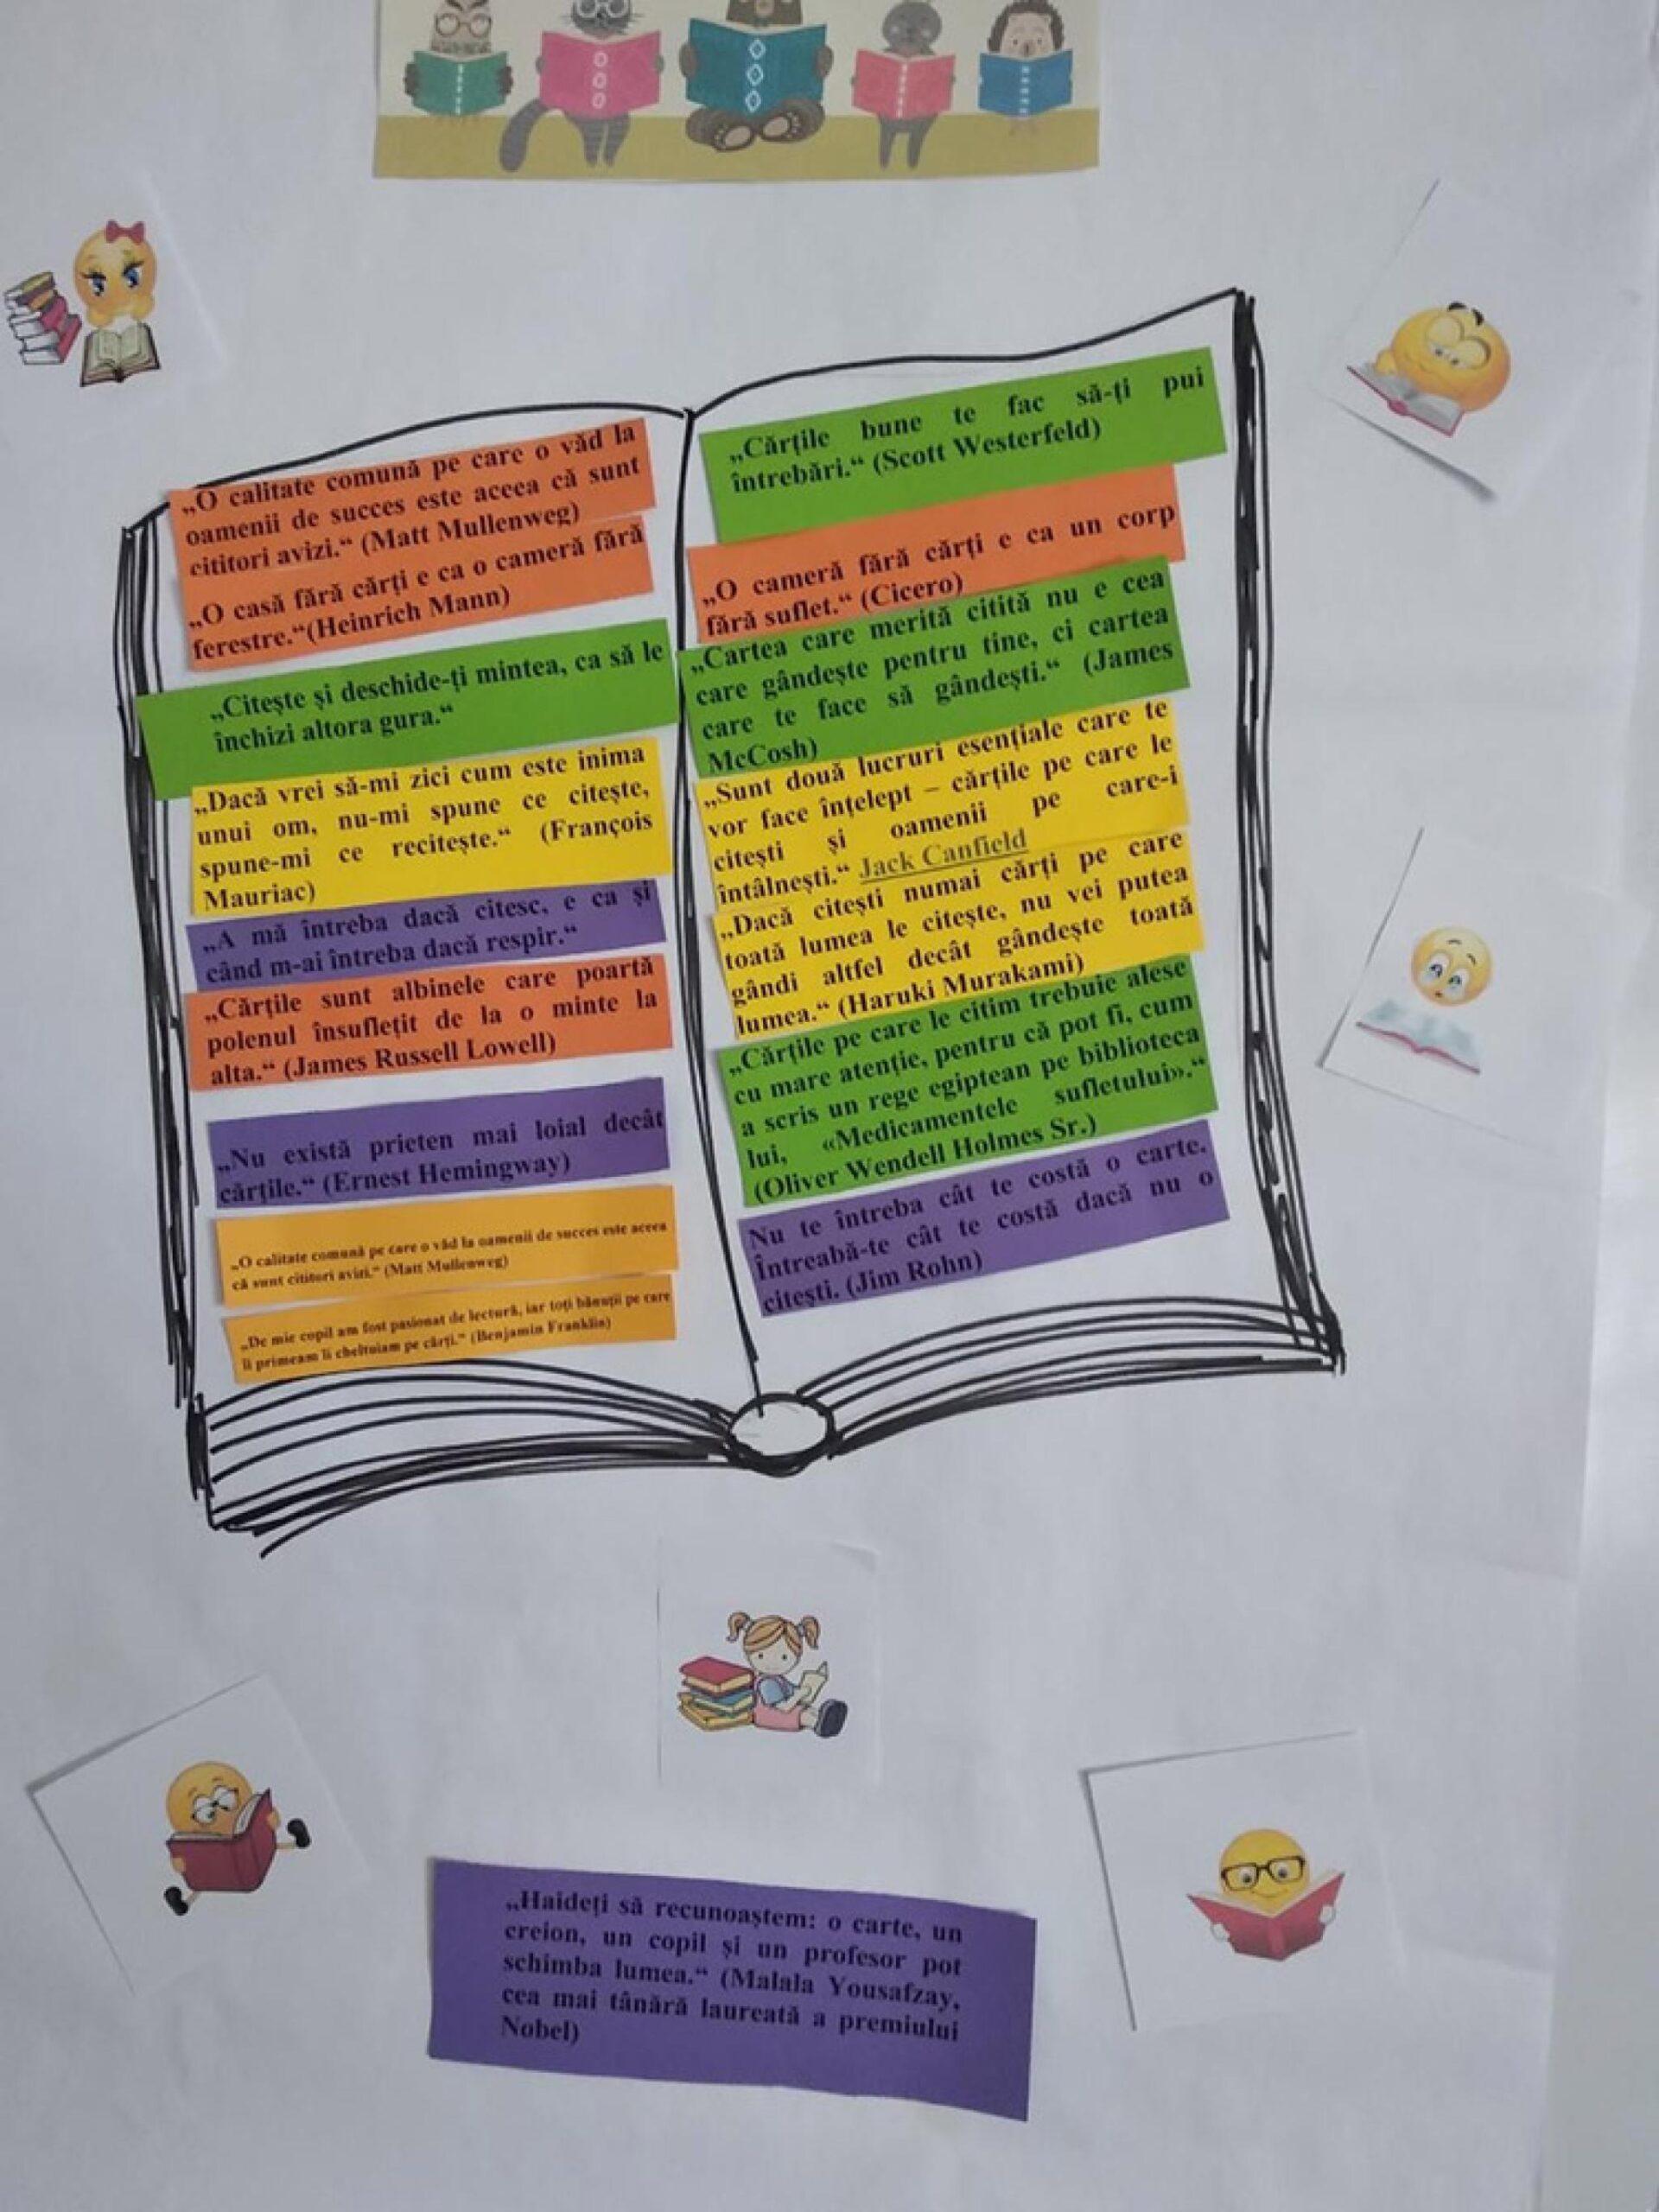 „O calitate comună pe care o văd la
oamenii de succes este aceea că sunt
cititori avizi.“ (Matt Mullenweg)
„O casă fără cărți e ca o cameră fără
ferestre.“(Heinrich Mann)
„Citește și deschide-ți mintea, ca să le
închizi altora gura.“
„Dacă vrei să-mi zici cum este inima
unui om, nu-mi spune ce citește,
spune-mi ce recitește.“ (François
Mauriac)
„A mă întreba dacă citesc, e ca și
când m-ai întreba dacă respir.“
„Cărțile sunt albinele care poartă
polenul însuflețit de la o minte la
alta.“ (James Russell Lowell)
„Nu există prieten mai loial decât
cărțile.“ (Ernest Hemingway)
„O calitate comună pe care o văd la oamenii de succes este aceea
că sunt cititori avizi.“ (Matt Mullenweg)
„De mic copil am fost pasionat de lectură, iar toți bănuții pe care
îi primeam îi cheltuiam pe cărți.“ (Benjamin Franklin)
„Cărțile bune te fac să-ți pui
întrebări.“ (Scott Westerfeld)
„O cameră fără cărți e ca un corp
fără suflet.“ (Cicero)
„Cartea care merită citită nu e cea
care gândește pentru tine, ci cartea
care te face să gândești.“ (James
McCosh)
„Sunt două lucruri esențiale care te
vor face înțelept – cărțile pe care le
citești și oamenii pe care-i
întâlnești.“ Jack Canfield
„Dacă citești numai cărți pe care
toată lumea le citește, nu vei putea
gândi altfel decât gândește toată
lumea.“ (Haruki Murakami)
„Cărțile pe care le citim trebuie alese
cu mare atenție, pentru că pot fi, cum
a scris un rege egiptean pe biblioteca
lui, «Medicamentele sufletului».“
(Oliver Wendell Holmes Sr.)
Nu te întreba cât te costă o carte.
Întreabă-te cât te costă dacă nu o
citești. (Jim Rohn)
„Haideți să recunoaștem: o carte, un
creion, un copil și un profesor pot
schimba lumea.“ (Malala Yousafzay,
cea mai tânără laureată a premiului
Nobel)